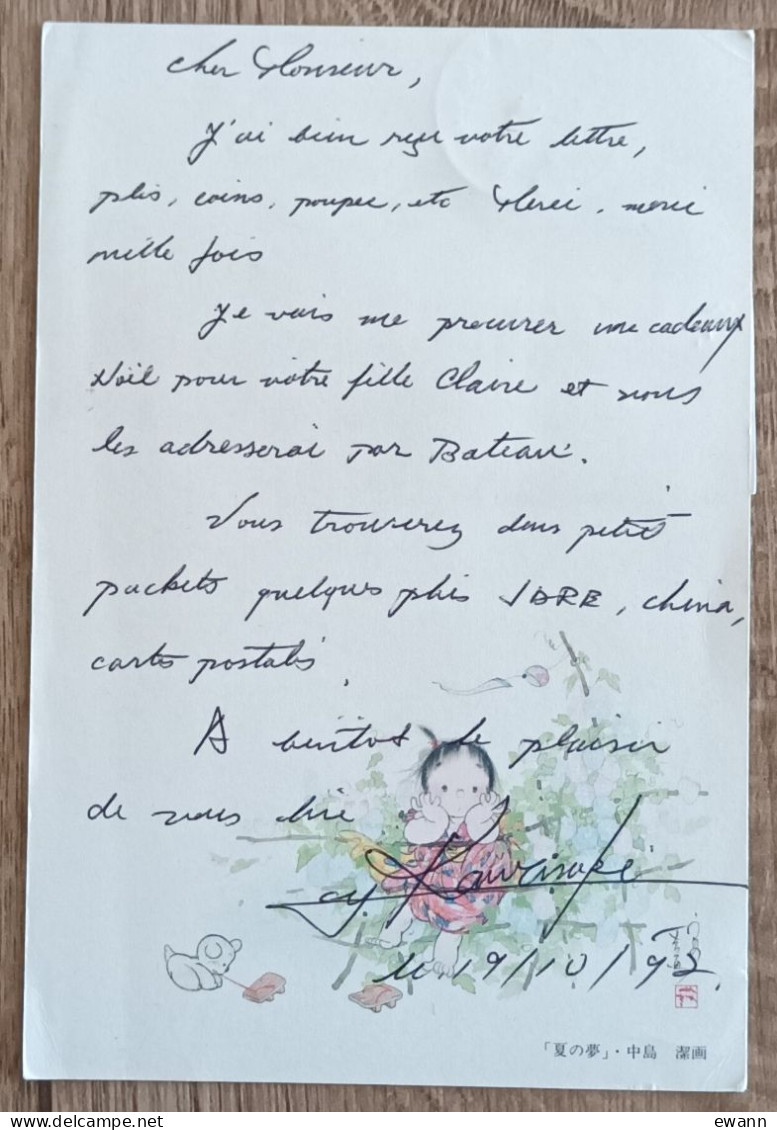 Cher Monsieur,
J'ai bien reçu votre lettre,
plis, coins, poupee, etc Merci, merci
mille fois
Je vais me procurer une cadeaux
Noël pour votre fille Claire et vous
les adresserai par Bateau.
Vous trouverez dans petit
packets quelques plis JDRE, china,
carts postales.
A bientot le plaisir
de vous lire
le 19/10/92.
「夏の夢」・中島 潔画
ewann